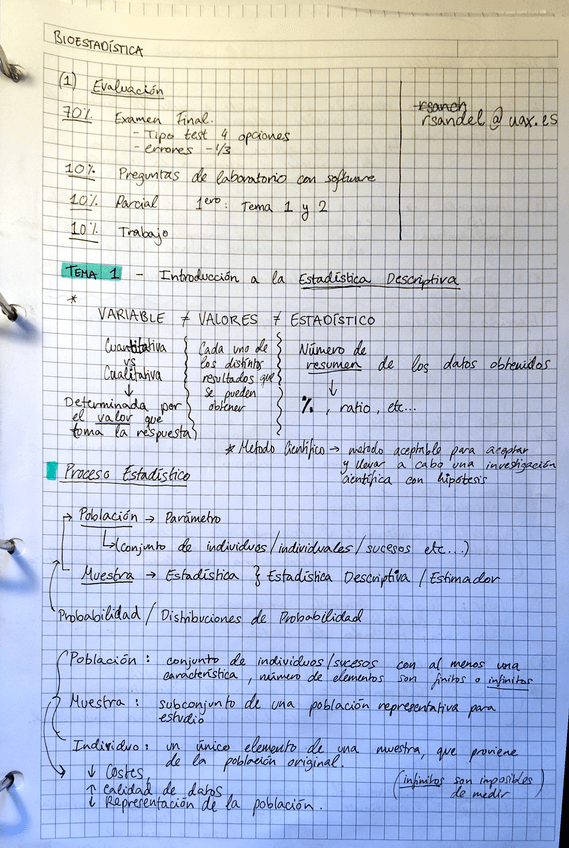 BIOESTADÍSTICA
(1) Evaluación
rsanch
rsandel@uax.es
70% Examen Final.
- Tipo test 4 opciones
- errores -1/3
10% Preguntas de laboratorio con software
10% Parcial 1ero: Tema 1 y 2
10% Trabajo
TEMA 1 - Introducción a la Estadística Descriptiva
*
VARIABLE ≠ VALORES ≠ ESTADÍSTICO
Cuantitativa
vs
Cualitativa
↓
Determinada por
el valor que
toma la respuesta
Cada uno de
los distintos
resultados que
se pueden
obtener
Número de
resumen de los datos obtenidos
↓
%, ratio, etc...
* Metodo Científico → metodo aceptable para aceptar
y llevar a cabo una investigación
científica con hipótesis
Proceso Estadístico
→ Población → Parámetro
↳ (conjunto de individuos/individuales/sucesos etc...)
Muestra → Estadística } Estadística Descriptiva / Estimador
Probabilidad / Distribuciones de Probabilidad
Población: conjunto de individuos/sucesos con al menos una
característica, número de elementos son finitos o infinitos
Muestra: subconjunto de una población representativa para
estudio
Individuo: un único elemento de una muestra, que proviene
de la población original.
↓ Costes,
↑ calidad de datos
↓ Representación de la población.
(infinitos son imposibles
de medir)